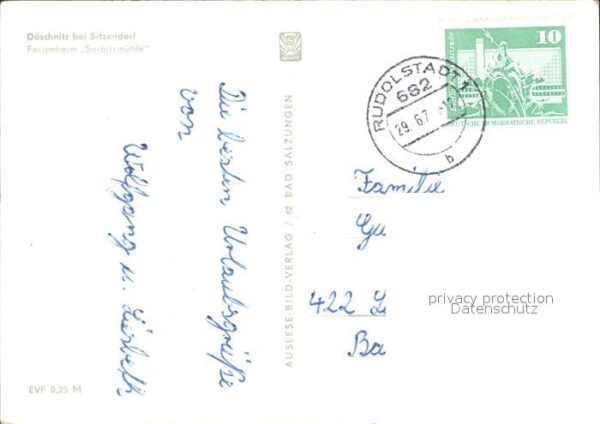 Döschnitz bei Sitzendorf
Ferienheim „Sorbitzmühle"
Die besten Urlaubsgrüße
von
Wolfgang u. Lisbeth
EVP 0,25 M
AUSLESE-BILD-VERLAG / 62 BAD SALZUNGEN
RUDOLSTADT 1
682
29. 6.7
b
10
DEUTSCHE DEMOKRATISCHE REPUBLIK
Familie
422 L
Ba
privacy protection
Datenschutz